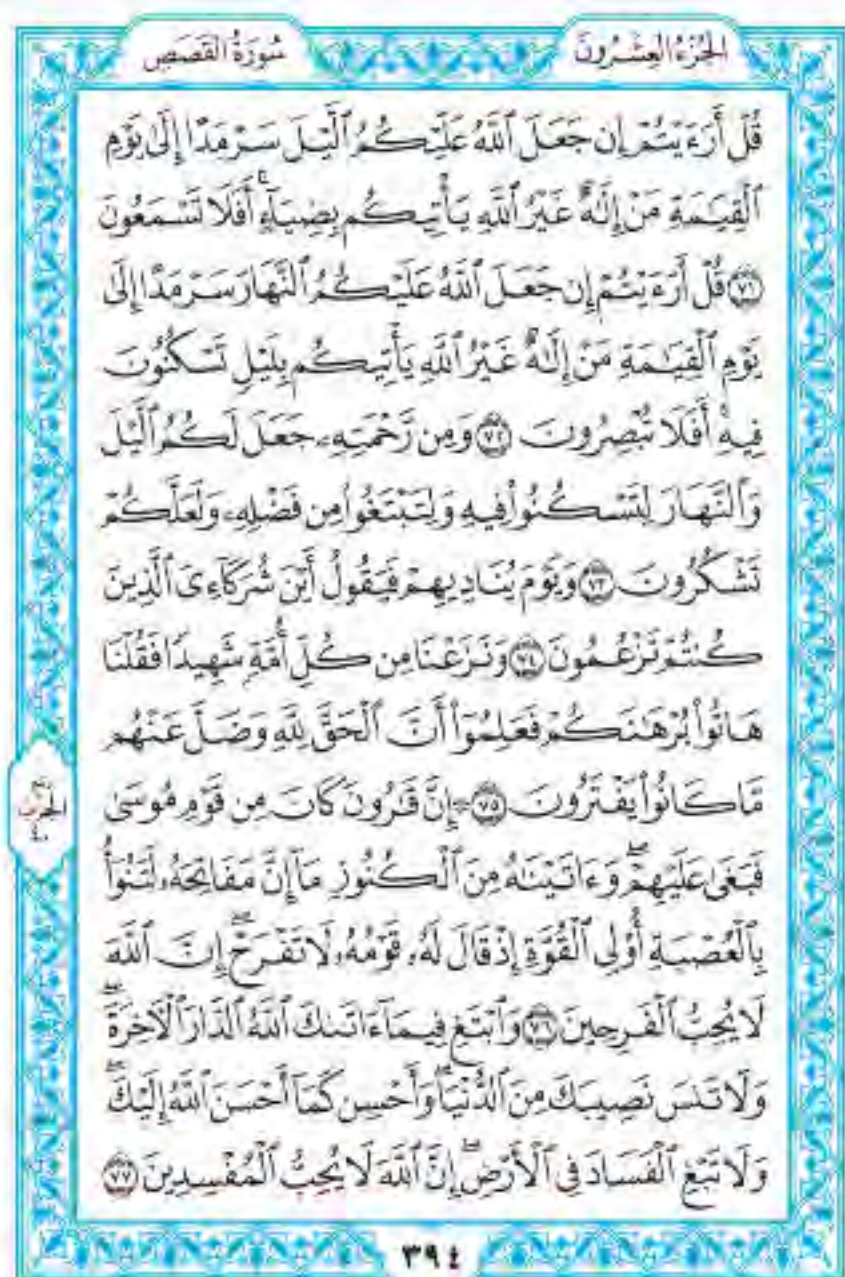 الجُزْءُ العِشْرُونَ
سُورَةُ القَصَصِ
قُلْ أَرَءَيْتُمْ إِن جَعَلَ ٱللَّهُ عَلَيْكُمُ ٱلَّيْلَ سَرْمَدًا إِلَىٰ يَوْمِ
ٱلْقِيَٰمَةِ مَنْ إِلَٰهٌ غَيْرُ ٱللَّهِ يَأْتِيكُم بِضِيَآءٍ ۖ أَفَلَا تَسْمَعُونَ
٧١ قُلْ أَرَءَيْتُمْ إِن جَعَلَ ٱللَّهُ عَلَيْكُمُ ٱلنَّهَارَ سَرْمَدًا إِلَىٰ
يَوْمِ ٱلْقِيَٰمَةِ مَنْ إِلَٰهٌ غَيْرُ ٱللَّهِ يَأْتِيكُم بِلَيْلٍ تَسْكُنُونَ
فِيهِ ۖ أَفَلَا تُبْصِرُونَ ٧٢ وَمِن رَّحْمَتِهِۦ جَعَلَ لَكُمُ ٱلَّيْلَ
وَٱلنَّهَارَ لِتَسْكُنُوا۟ فِيهِ وَلِتَبْتَغُوا۟ مِن فَضْلِهِۦ وَلَعَلَّكُمْ
تَشْكُرُونَ ٧٣ وَيَوْمَ يُنَادِيهِمْ فَيَقُولُ أَيْنَ شُرَكَآءِىَ ٱلَّذِينَ
كُنتُمْ تَزْعُمُونَ ٧٤ وَنَزَعْنَا مِن كُلِّ أُمَّةٍ شَهِيدًا فَقُلْنَا
هَاتُوا۟ بُرْهَٰنَكُمْ فَعَلِمُوٓا۟ أَنَّ ٱلْحَقَّ لِلَّهِ وَضَلَّ عَنْهُم
مَّا كَانُوا۟ يَفْتَرُونَ ٧٥ ۞ إِنَّ قَٰرُونَ كَانَ مِن قَوْمِ مُوسَىٰ
فَبَغَىٰ عَلَيْهِمْ ۖ وَءَاتَيْنَٰهُ مِنَ ٱلْكُنُوزِ مَآ إِنَّ مَفَاتِحَهُۥ لَتَنُوٓأُ
بِٱلْعُصْبَةِ أُو۟لِى ٱلْقُوَّةِ إِذْ قَالَ لَهُۥ قَوْمُهُۥ لَا تَفْرَحْ ۖ إِنَّ ٱللَّهَ
لَا يُحِبُّ ٱلْفَرِحِينَ ٧٦ وَٱبْتَغِ فِيمَآ ءَاتَىٰكَ ٱللَّهُ ٱلدَّارَ ٱلْءَاخِرَةَ ۖ
وَلَا تَنسَ نَصِيبَكَ مِنَ ٱلدُّنْيَا ۖ وَأَحْسِن كَمَآ أَحْسَنَ ٱللَّهُ إِلَيْكَ ۖ
وَلَا تَبْغِ ٱلْفَسَادَ فِى ٱلْأَرْضِ ۖ إِنَّ ٱللَّهَ لَا يُحِبُّ ٱلْمُفْسِدِينَ ٧٧
الحزب
٤٠
٣٩٤